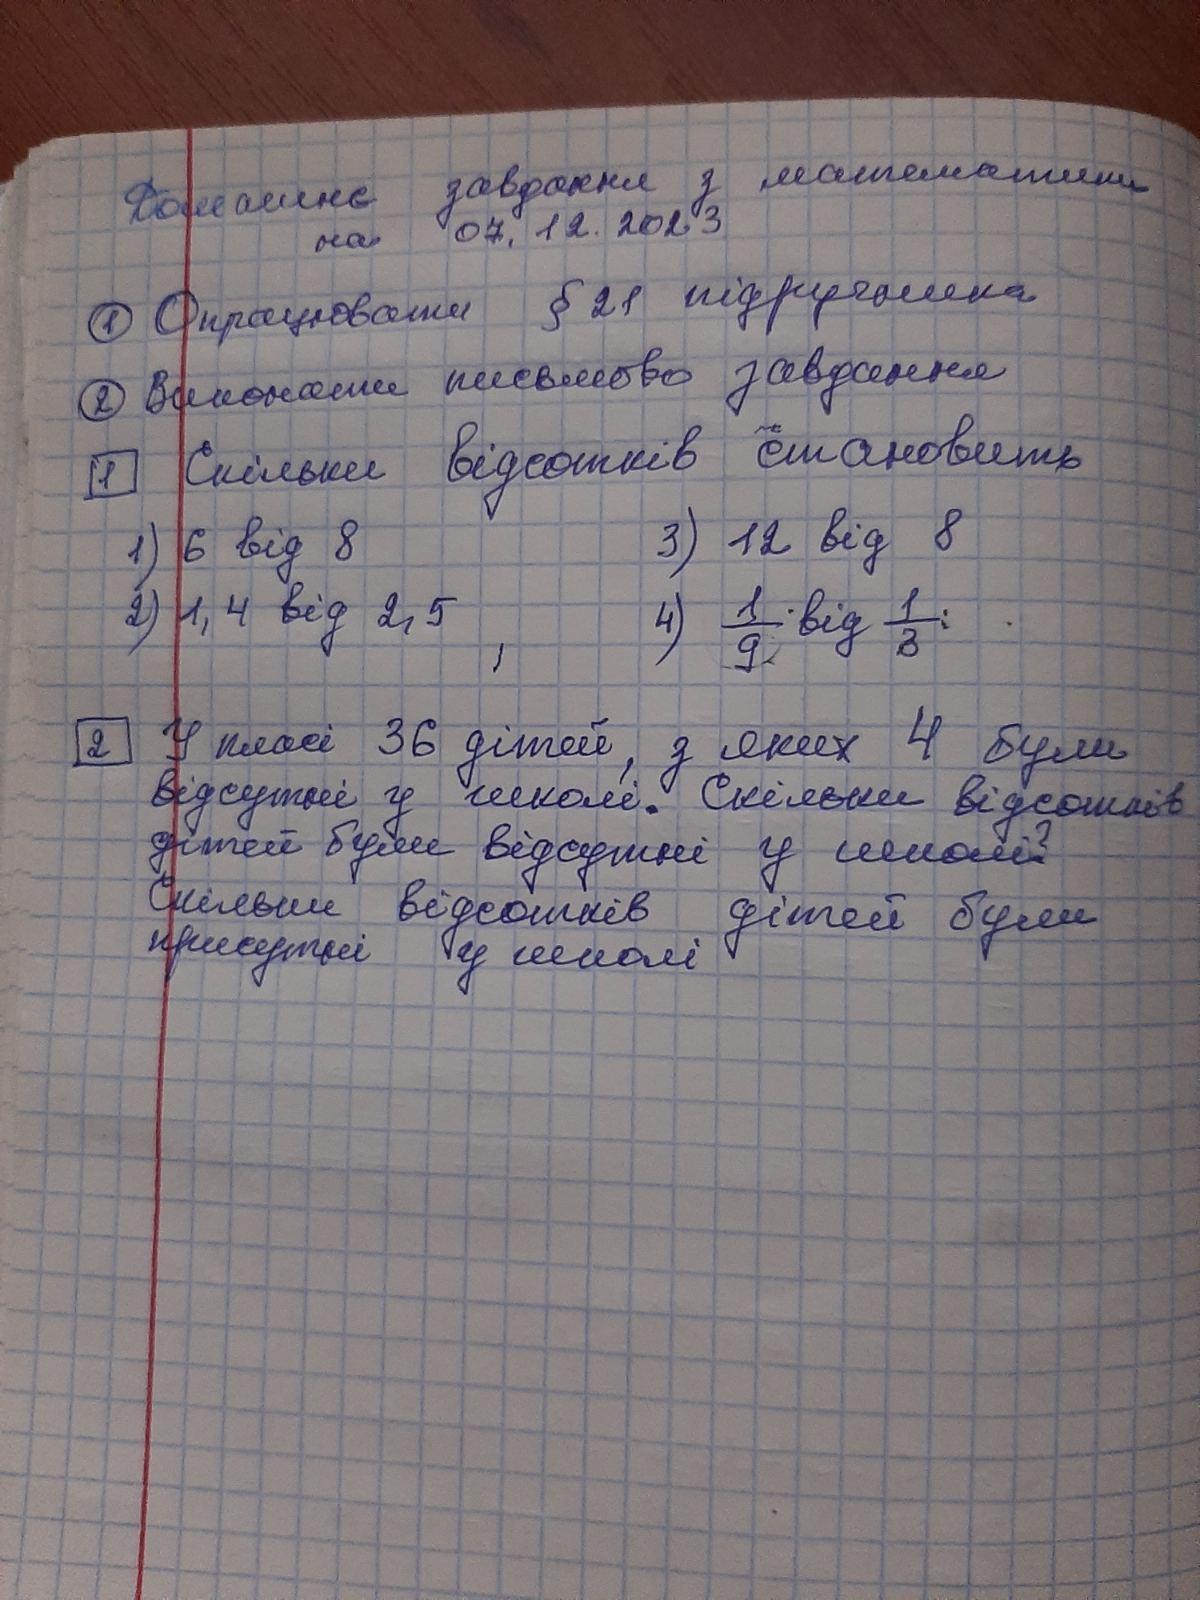 Домашнє завдання з математики
на 07.12.2023
① Опрацювати § 21 підручника
② Виконати письмово завдання
1 Скільки відсотків становить
1) 6 від 8 3) 12 від 8
2) 1,4 від 2,5 4) 1/9 від 1/3
2 У класі 36 дітей, з яких 4 були
відсутні у школі. Скільки відсотків
дітей були відсутні у школі?
Скільки відсотків дітей були
присутні у школі